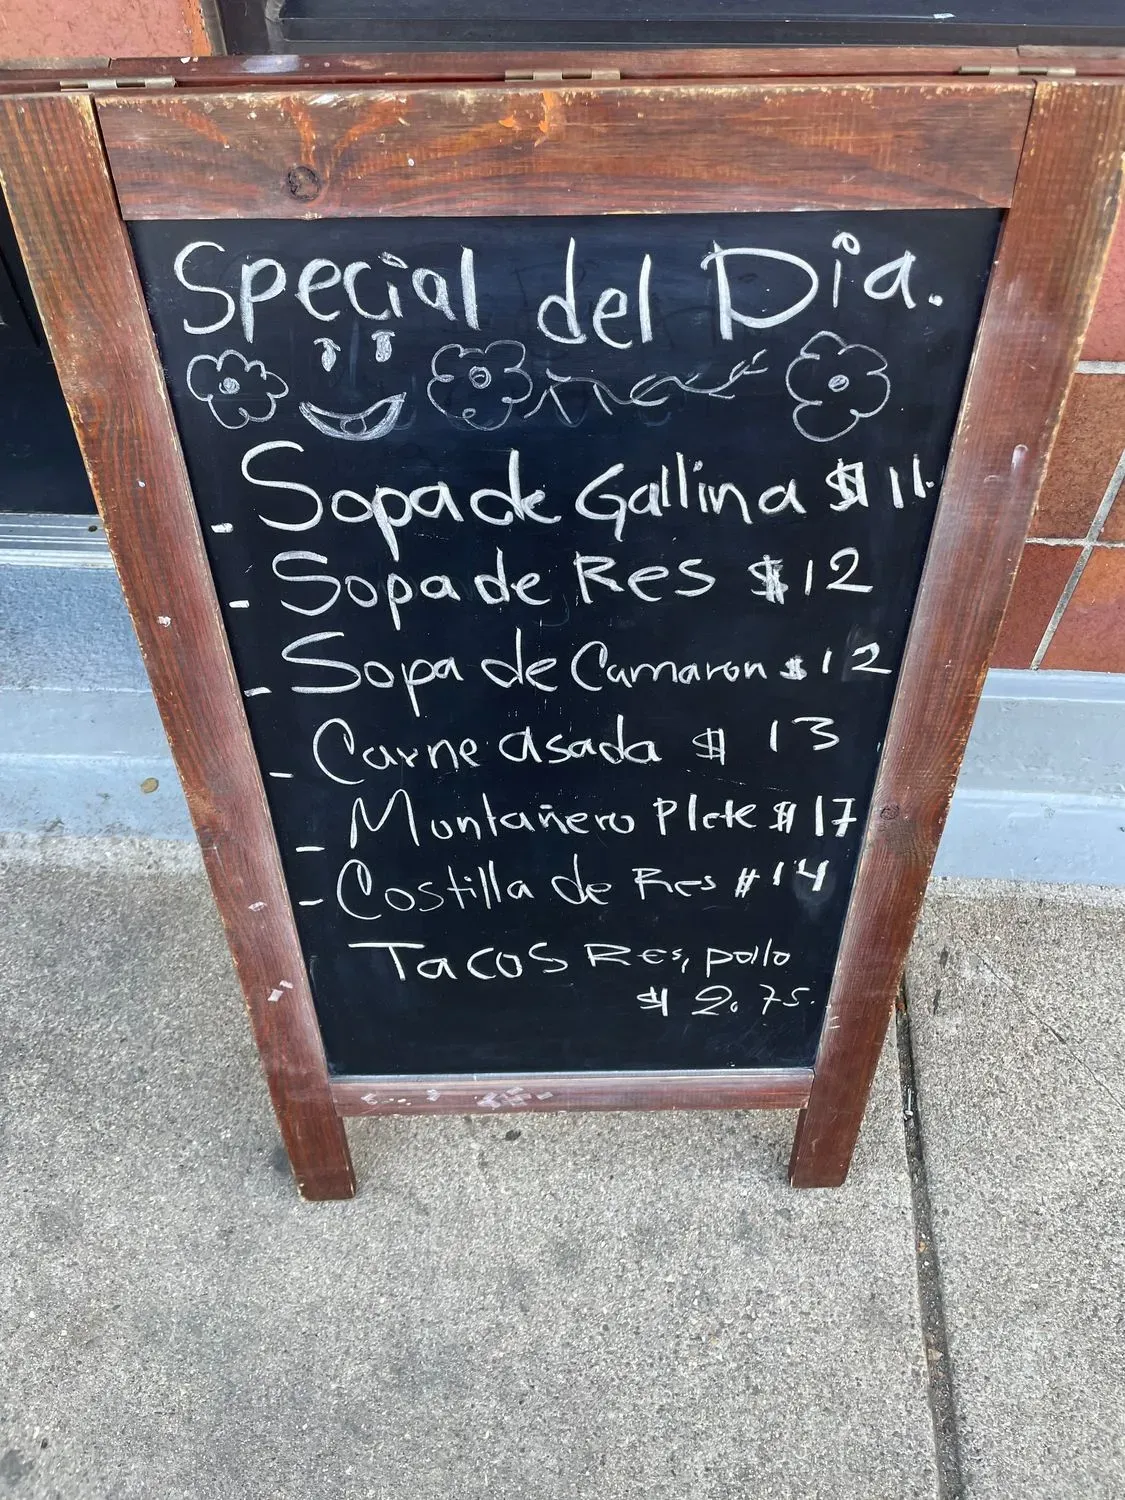 Special del Dia.
- Sopa de Gallina $11.
- Sopa de Res $12
- Sopa de Camaron $12
- Carne asada $13
- Montañero Plate $17
- Costilla de Res $14
Tacos Res, pollo
$2.75.